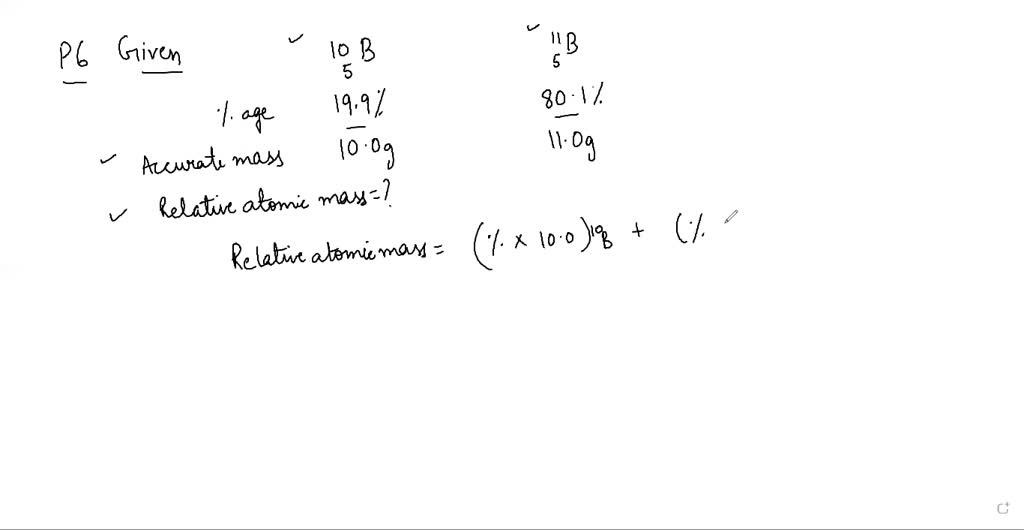 P6 Given ✓ ¹⁰₅B ✓ ¹¹₅B
%age 19.9% 80.1%
✓ Accurate mass 10.0g 11.0g
✓ Relative atomic mass=?
Relative atomic mass = (% × 10.0)¹⁰B + (%